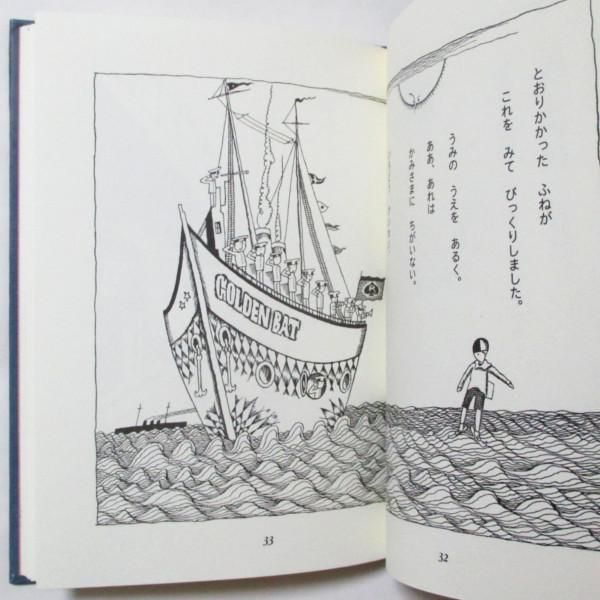 とおりかかった ふねが
これを みて びっくりしました。
うみの うえを あるく。
ああ、あれは
かみさまに ちがいない。
GOLDEN BAT
33
32